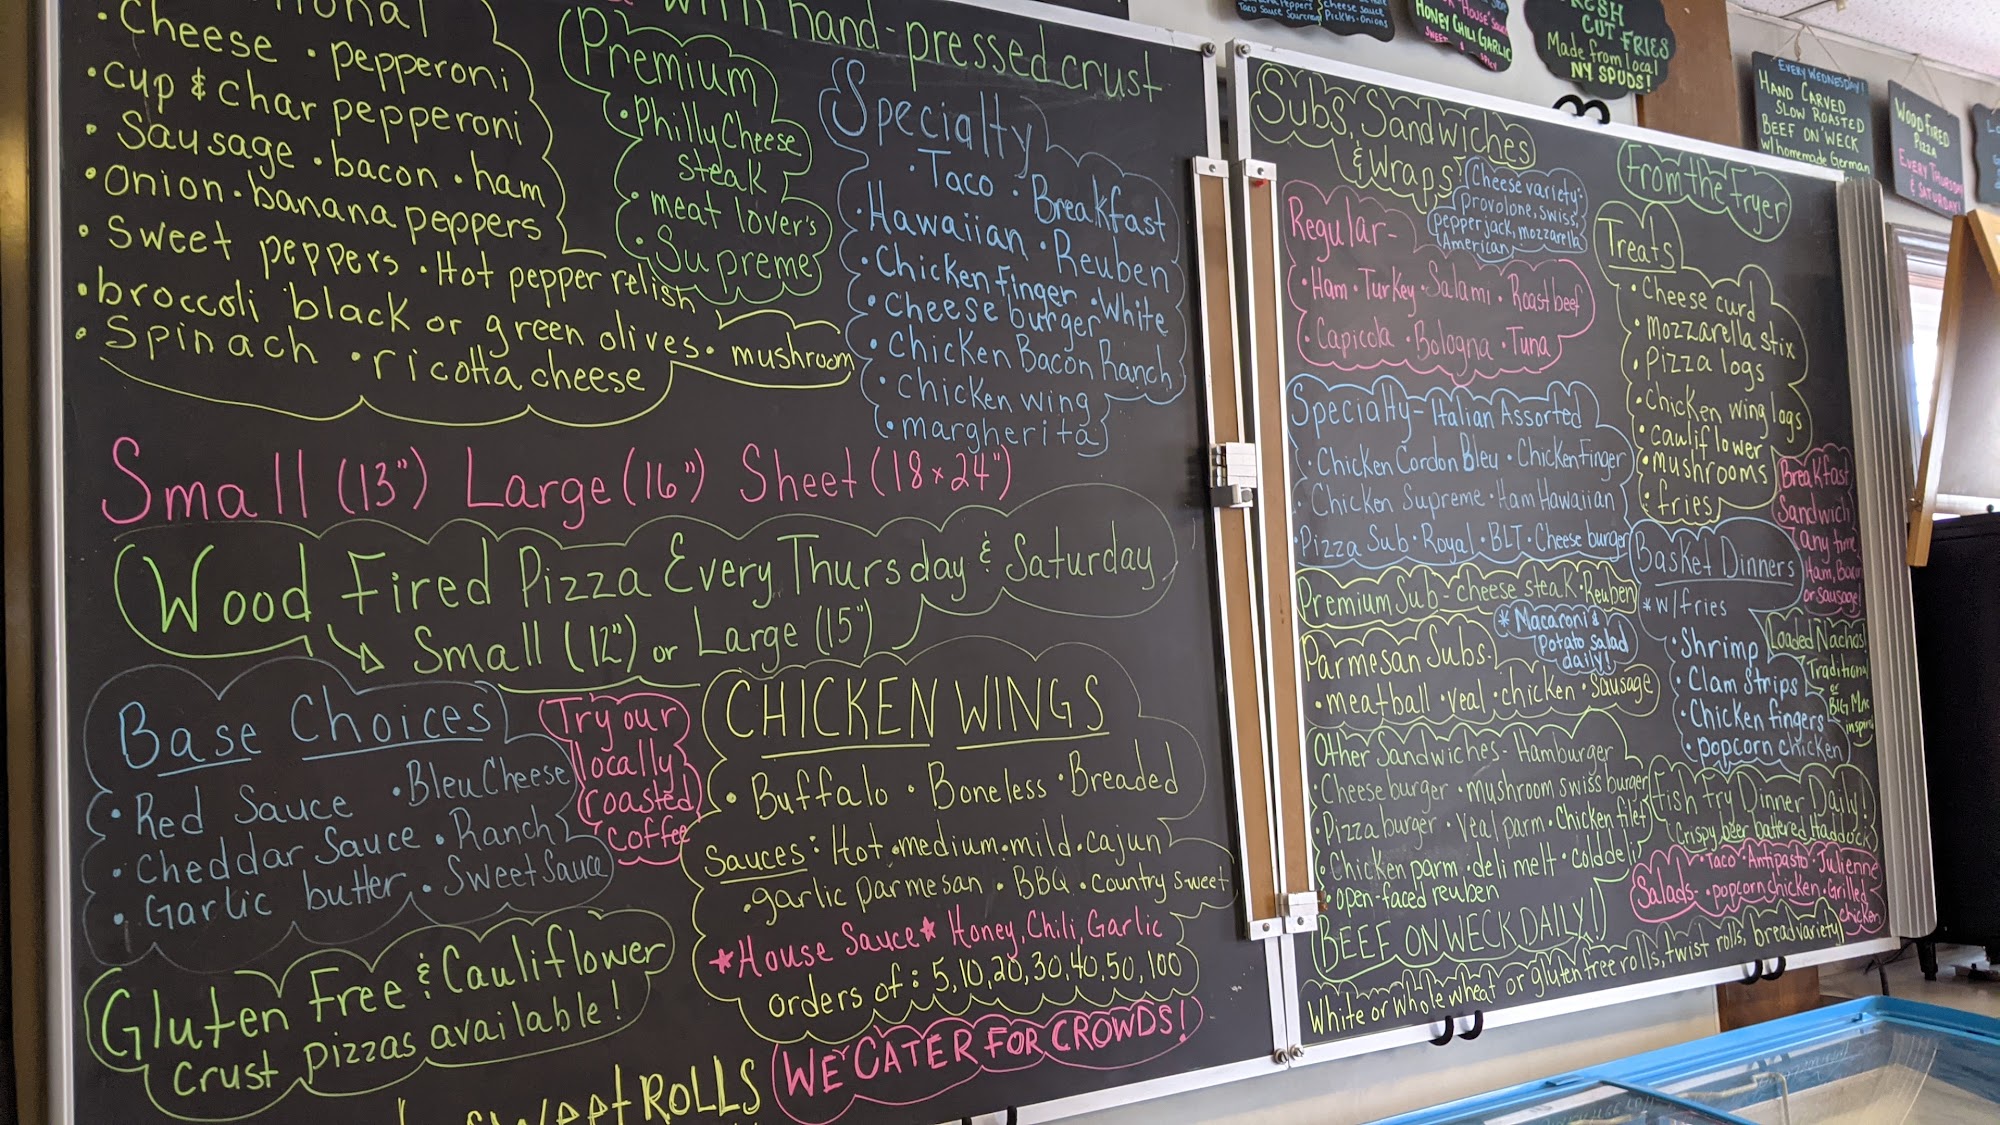 with hand-pressed crust
• Cheese • pepperoni
• cup & char pepperoni
• Sausage • bacon • ham
• onion • banana peppers
• Sweet peppers • Hot pepper relish
• broccoli • black or green olives • mushroom
• Spinach • ricotta cheese
Premium
• Philly Cheese
steak
• meat lover's
• Supreme
Specialty
• Taco • Breakfast
• Hawaiian • Reuben
• Chicken finger • White
• Cheese burger
• Chicken Bacon Ranch
• Chicken wing
• margherita
Small (13") Large (16") Sheet (18 x 24")
Wood Fired Pizza Every Thursday & Saturday
Small (12") or Large (15")
Base Choices
• Red Sauce • Bleu Cheese
• Cheddar Sauce • Ranch
• Garlic butter • Sweet Sauce
Try our
locally
roasted
coffee
CHICKEN WINGS
• Buffalo • Boneless • Breaded
Sauces: Hot • medium • mild • cajun
• garlic parmesan • BBQ • country sweet
*House Sauce* Honey, Chili, Garlic
orders of: 5, 10, 20, 30, 40, 50, 100
Gluten Free & Cauliflower
Crust pizzas available!
WE CATER FOR CROWDS!
Sweet ROLLS
Subs, Sandwiches
& Wraps
Cheese variety:
provolone, swiss,
pepperjack, mozzarella
American
Regular-
• Ham • Turkey • Salami • Roast beef
• Capicola • Bologna • Tuna
Specialty- Italian Assorted
• Chicken Cordon Bleu • Chicken Finger
• Chicken Supreme • Ham Hawaiian
• Pizza Sub • Royal • BLT • Cheese burger
Premium Sub- cheese steak • Reuben
* Macaroni &
Potato salad
daily!
Parmesan Subs-
• meatball • veal • chicken • sausage
Other Sandwiches- Hamburger
• Cheese burger • mushroom swiss burger
• Pizza burger • veal parm • Chicken filet
• Chicken parm • deli melt • cold deli
• open-faced reuben
BEEF ON WECK DAILY!
White or whole wheat or gluten free rolls, twist rolls, bread variety
From the Fryer
Treats
• Cheese curd
• Mozzarella stix
• Pizza logs
• Chicken wing logs
• cauliflower
• mushrooms
• fries
Breakfast
Sandwich
any time
Ham, Bacon
or sausage!
Basket Dinners
* w/ fries
• Shrimp
• Clam Strips
• Chicken fingers
• popcorn chicken
Loaded Nachos!
Traditional
or
BIG MAC
Fish Fry Dinner Daily!
Crispy beer battered Haddock
Salads- • Taco • Antipasto • Julienne
• popcorn chicken • Grilled
chicken
Cheese sauce
Pickles • Onions
HONEY CHILI GARLIC
FRESH
CUT FRIES
Made from local
NY SPUDS!
EVERY WEDNESDAY!
HAND CARVED
SLOW ROASTED
BEEF ON WECK
w/ homemade German
WOOD FIRED
PIZZA
EVERY THURSDAY
& SATURDAY!